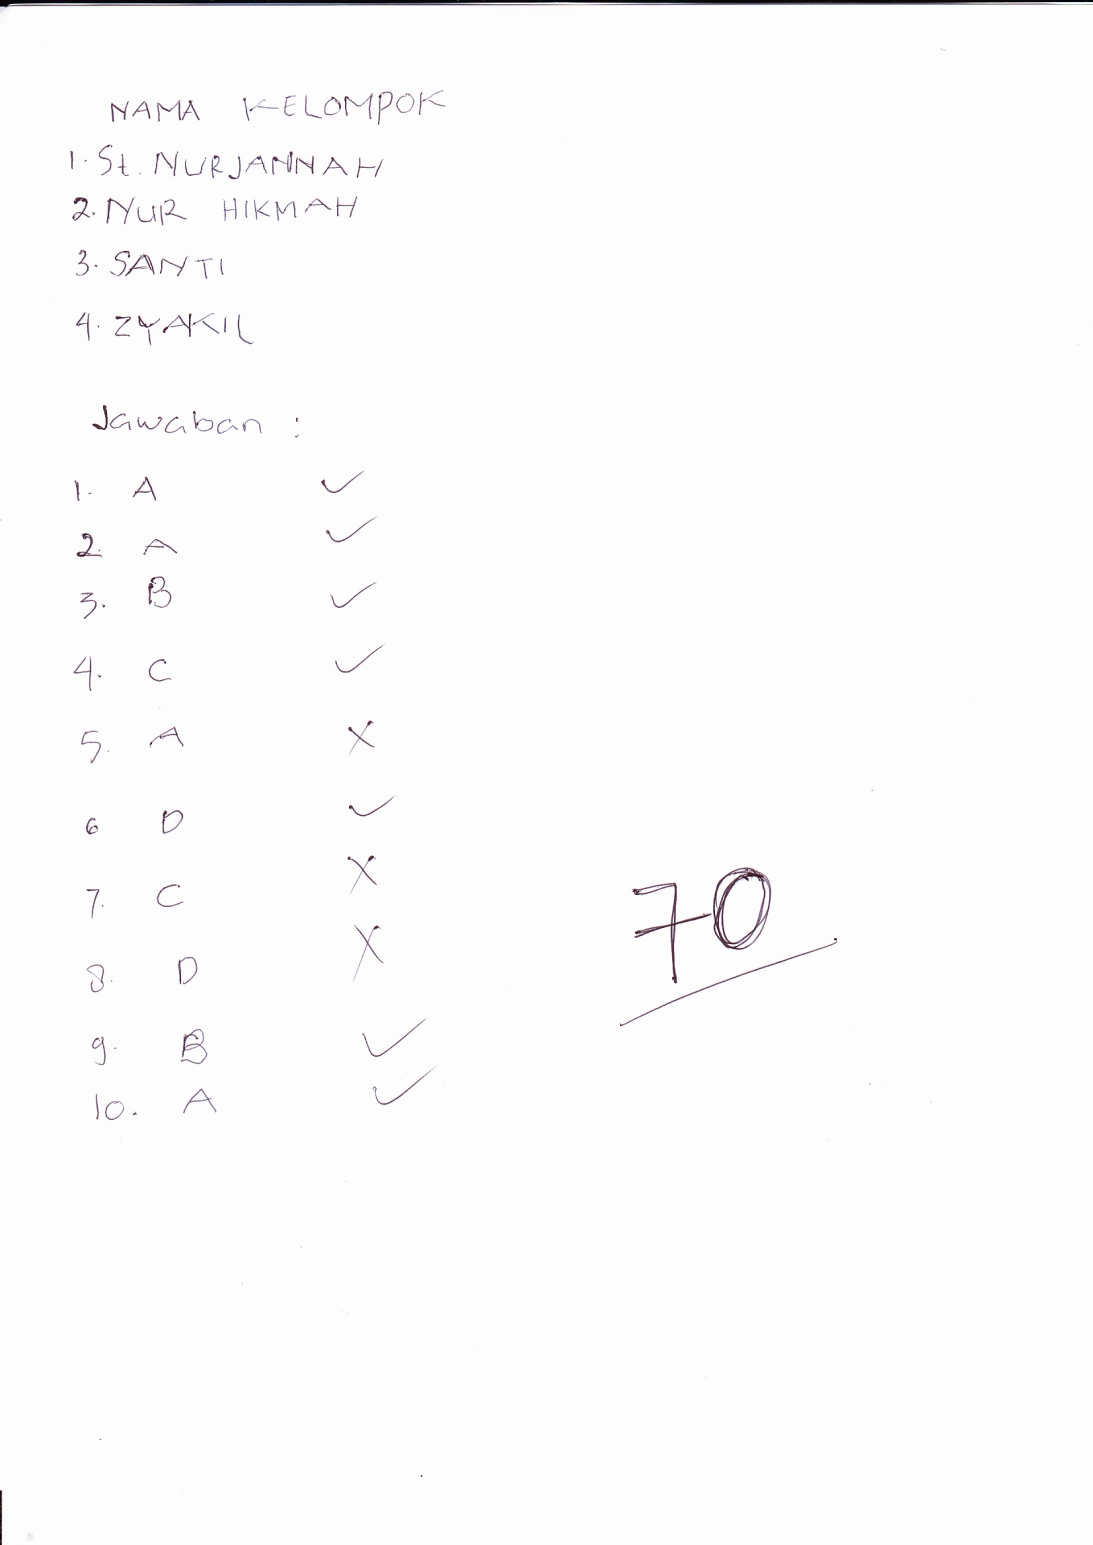 NAMA KELOMPOK
1. St. NURJANNAH
2. NUR HIKMAH
3. SANTI
4. ZYAKIL
Jawaban :
1. A ✓
2. A ✓
3. B ✓
4. C ✓
5. A X
6 D ✓
7. C X
8. D X
9. B ✓
10. A ✓
70